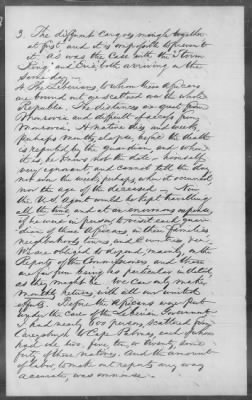 3. The different Cargoes mingle together
at first and it is impossible to prevent
it. As was the Case with the "Storm
King" and Erie, both arriving on the
same day.
4. The Liberians to whom these Africans
are bound out are scattered over the whole
Republic. The distances are great from
Monrovia and difficult of access from
Monrovia. A native dies and weeks
perhaps months elapse before the death
is reported by the guardian, and when
it is, he knows not the date - himself
very ignorant and cannot tell the day
nor even the week, perhaps, when it occurred
nor the age of the deceased. Now
the U.S. Agent would be kept travelling
all the time and at an enormous expense
if he was in person to visit each guardian
of these Africans in their families
neighborhoods, towns and counties.
We are obliged to depend, mainly, on the
Reports of the Commissioners and these
are far from being as particular in details
as they might be. We can only make
monthly returns, with all our united
efforts. Before the Africans were put
under the care of the Liberian Government
I had nearly 600 persons scattered from
Careysburgh to Cape Palmas, each of whom
had one two, five, ten, or twenty some
forty of these natives. And the amount
of labor, to make out reports any way
accurate, was immense.